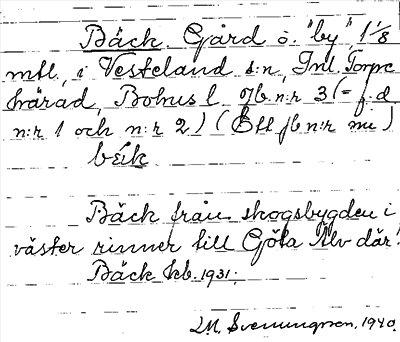 Bäck. Gård o. "by", 1 1/8
mtl., i Vesteland s:n, Inl. Torpe
härad, Bohus l. Jb. n:r 3 (= f. d
n:r 1 och n:r 2) (Ett jb n:r nu)
beík
Bäck från skogsbygden i
väster rinner till Göta Älv där!
Bäck kb. 1931.
LM. Svenungsson. 1940.